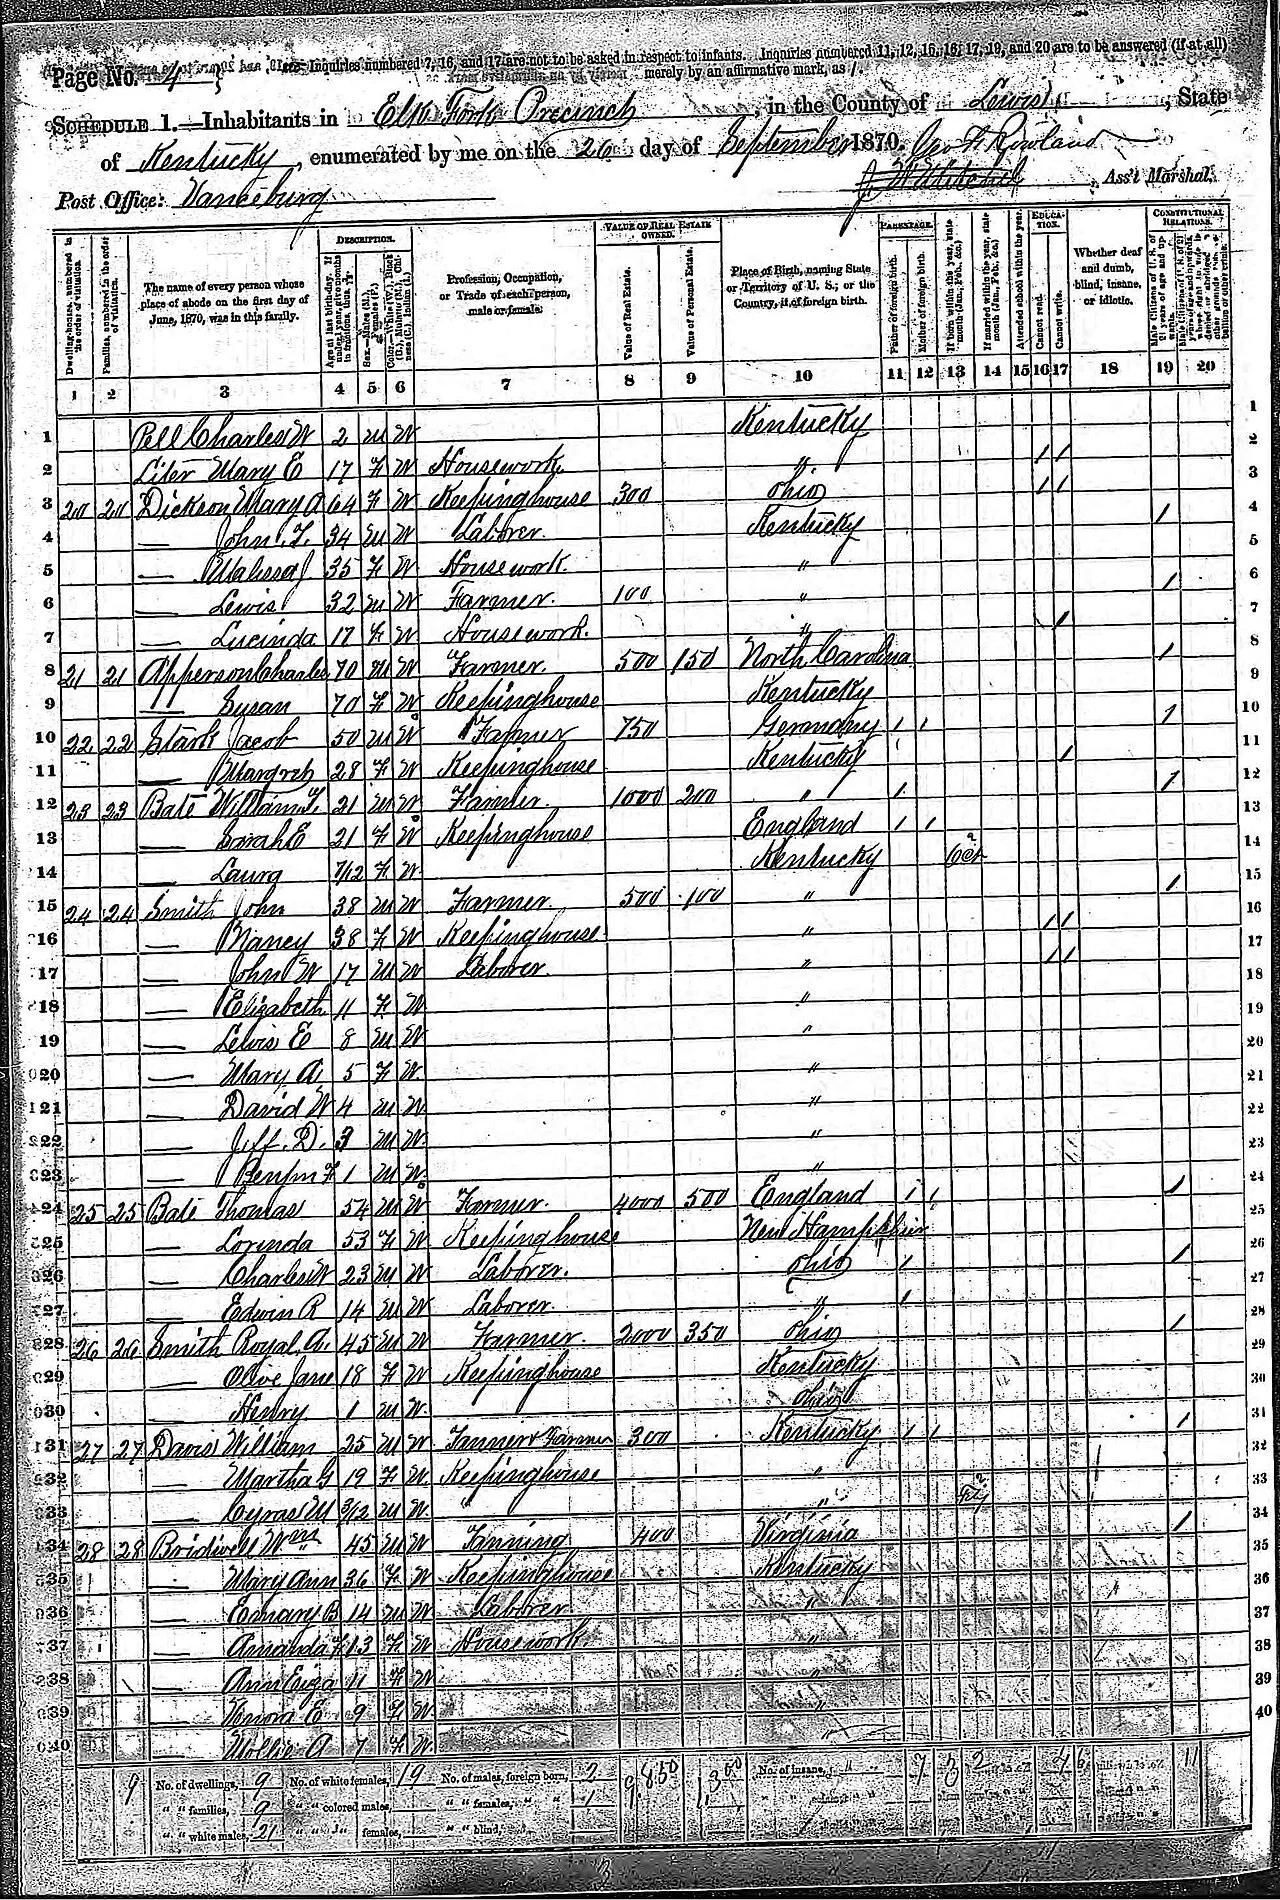 Page No. 4
Inquiries numbered 7, 16, and 17 are not to be asked in respect to infants. Inquiries numbered 11, 12, 15, 16, 17, 19, and 20 are to be answered (if at all)
merely by an affirmative mark, as /.
SCHEDULE 1.—Inhabitants in Elk Fork Precinct, in the County of Lewis, State
of Kentucky, enumerated by me on the 26 day of September 1870. Geo W Rowland
Post Office: Vanceburg Ass't Marshal.
DESCRIPTION. VALUE OF REAL ESTATE OWNED. PARENTAGE. EDUCATION. CONSTITUTIONAL RELATIONS.
Dwelling-houses, numbered in the order of visitation.
Families, numbered in the order of visitation.
The name of every person whose place of abode on the first day of June, 1870, was in this family.
Profession, Occupation, or Trade of each person, male or female.
Value of Real Estate.
Value of Personal Estate.
Place of Birth, naming State or Territory of U. S.; or the Country, if of foreign birth.
Father of foreign birth.
Mother of foreign birth.
If born within the year, state month (Jan., Feb., &c.)
If married within the year, state month (Jan., Feb., &c.)
Attended school within the year.
Cannot read.
Cannot write.
Whether deaf and dumb, blind, insane, or idiotic.
1 2 3 4 5 6 7 8 9 10 11 12 13 14 15 16 17 18 19 20
1 Pell Charles W 2 M W Kentucky
2 Liter Mary E 17 F W Housework " / /
3 20 20 Dickson Mary A 64 F W Keepinghouse 300 Ohio / /
4 — John T. 34 M W Laborer. Kentucky /
5 — Malissa J 35 F W Housework. "
6 — Lewis 32 M W Farmer. 100 " /
7 — Lucinda 17 F W Housework. " /
8 21 21 Apperson Charles 70 M W Farmer. 500 150 North Carolina /
9 — Susan 70 F W Keepinghouse Kentucky
10 22 22 Stark Jacob 50 M W Farmer 750 Germany / / /
11 — Margreh 28 F W Keepinghouse Kentucky / /
12 23 23 Bate William T. 21 M W Farmer. 1000 200 " / /
13 — Sarah E 21 F W Keepinghouse England / /
14 — Laura 7/12 F W Kentucky Oct
15 24 24 Smith John 38 M W Farmer. 500 100 " /
16 — Nancy 38 F W Keepinghouse " / /
17 — John W 17 M W Laborer. " / /
18 — Elizabeth 11 F W "
19 — Lewis E 8 M W "
20 — Mary A 5 F W "
21 — David W 4 M W "
22 — Jeff. D. 3 M W "
23 — Benjm F 1 M W "
24 25 25 Bate Thomas 54 M W Farmer. 4000 500 England / / /
25 — Lorinda 53 F W Keepinghouse New Hampshire
26 — Charles W 23 M W Laborer. Ohio / /
27 — Edwin R 14 M W Laborer. " /
28 26 26 Smith Royal A. 45 M W Farmer. 2000 350 Ohio /
29 — Olive Jane 18 F W Keepinghouse Kentucky
30 — Henry 1 M W Ohio
31 27 27 Davis William 25 M W Tanner & Farmer 300 Kentucky / / /
32 — Martha G 19 F W Keepinghouse "
33 — Cyras M 3/12 M W "
34 28 28 Bridwell Wm 45 M W Tanning 400 Virginia /
35 — Mary Ann 36 F W Keepinghouse Kentucky
36 — Emary B 14 M W Laborer. "
37 — Amanda F 13 F W Housework "
38 — Ann Eliza 11 F W "
39 — E 9 F W "
40 — Mollie A 7 F W "
9 No. of dwellings, 9 No. of white females, 19 No. of males, foreign born, 2 No. of insane, 7 3 2 4 6 11
" " families, 9 " " colored males, " " females, " " 1
" " white males, 21 " " " females, " " blind,